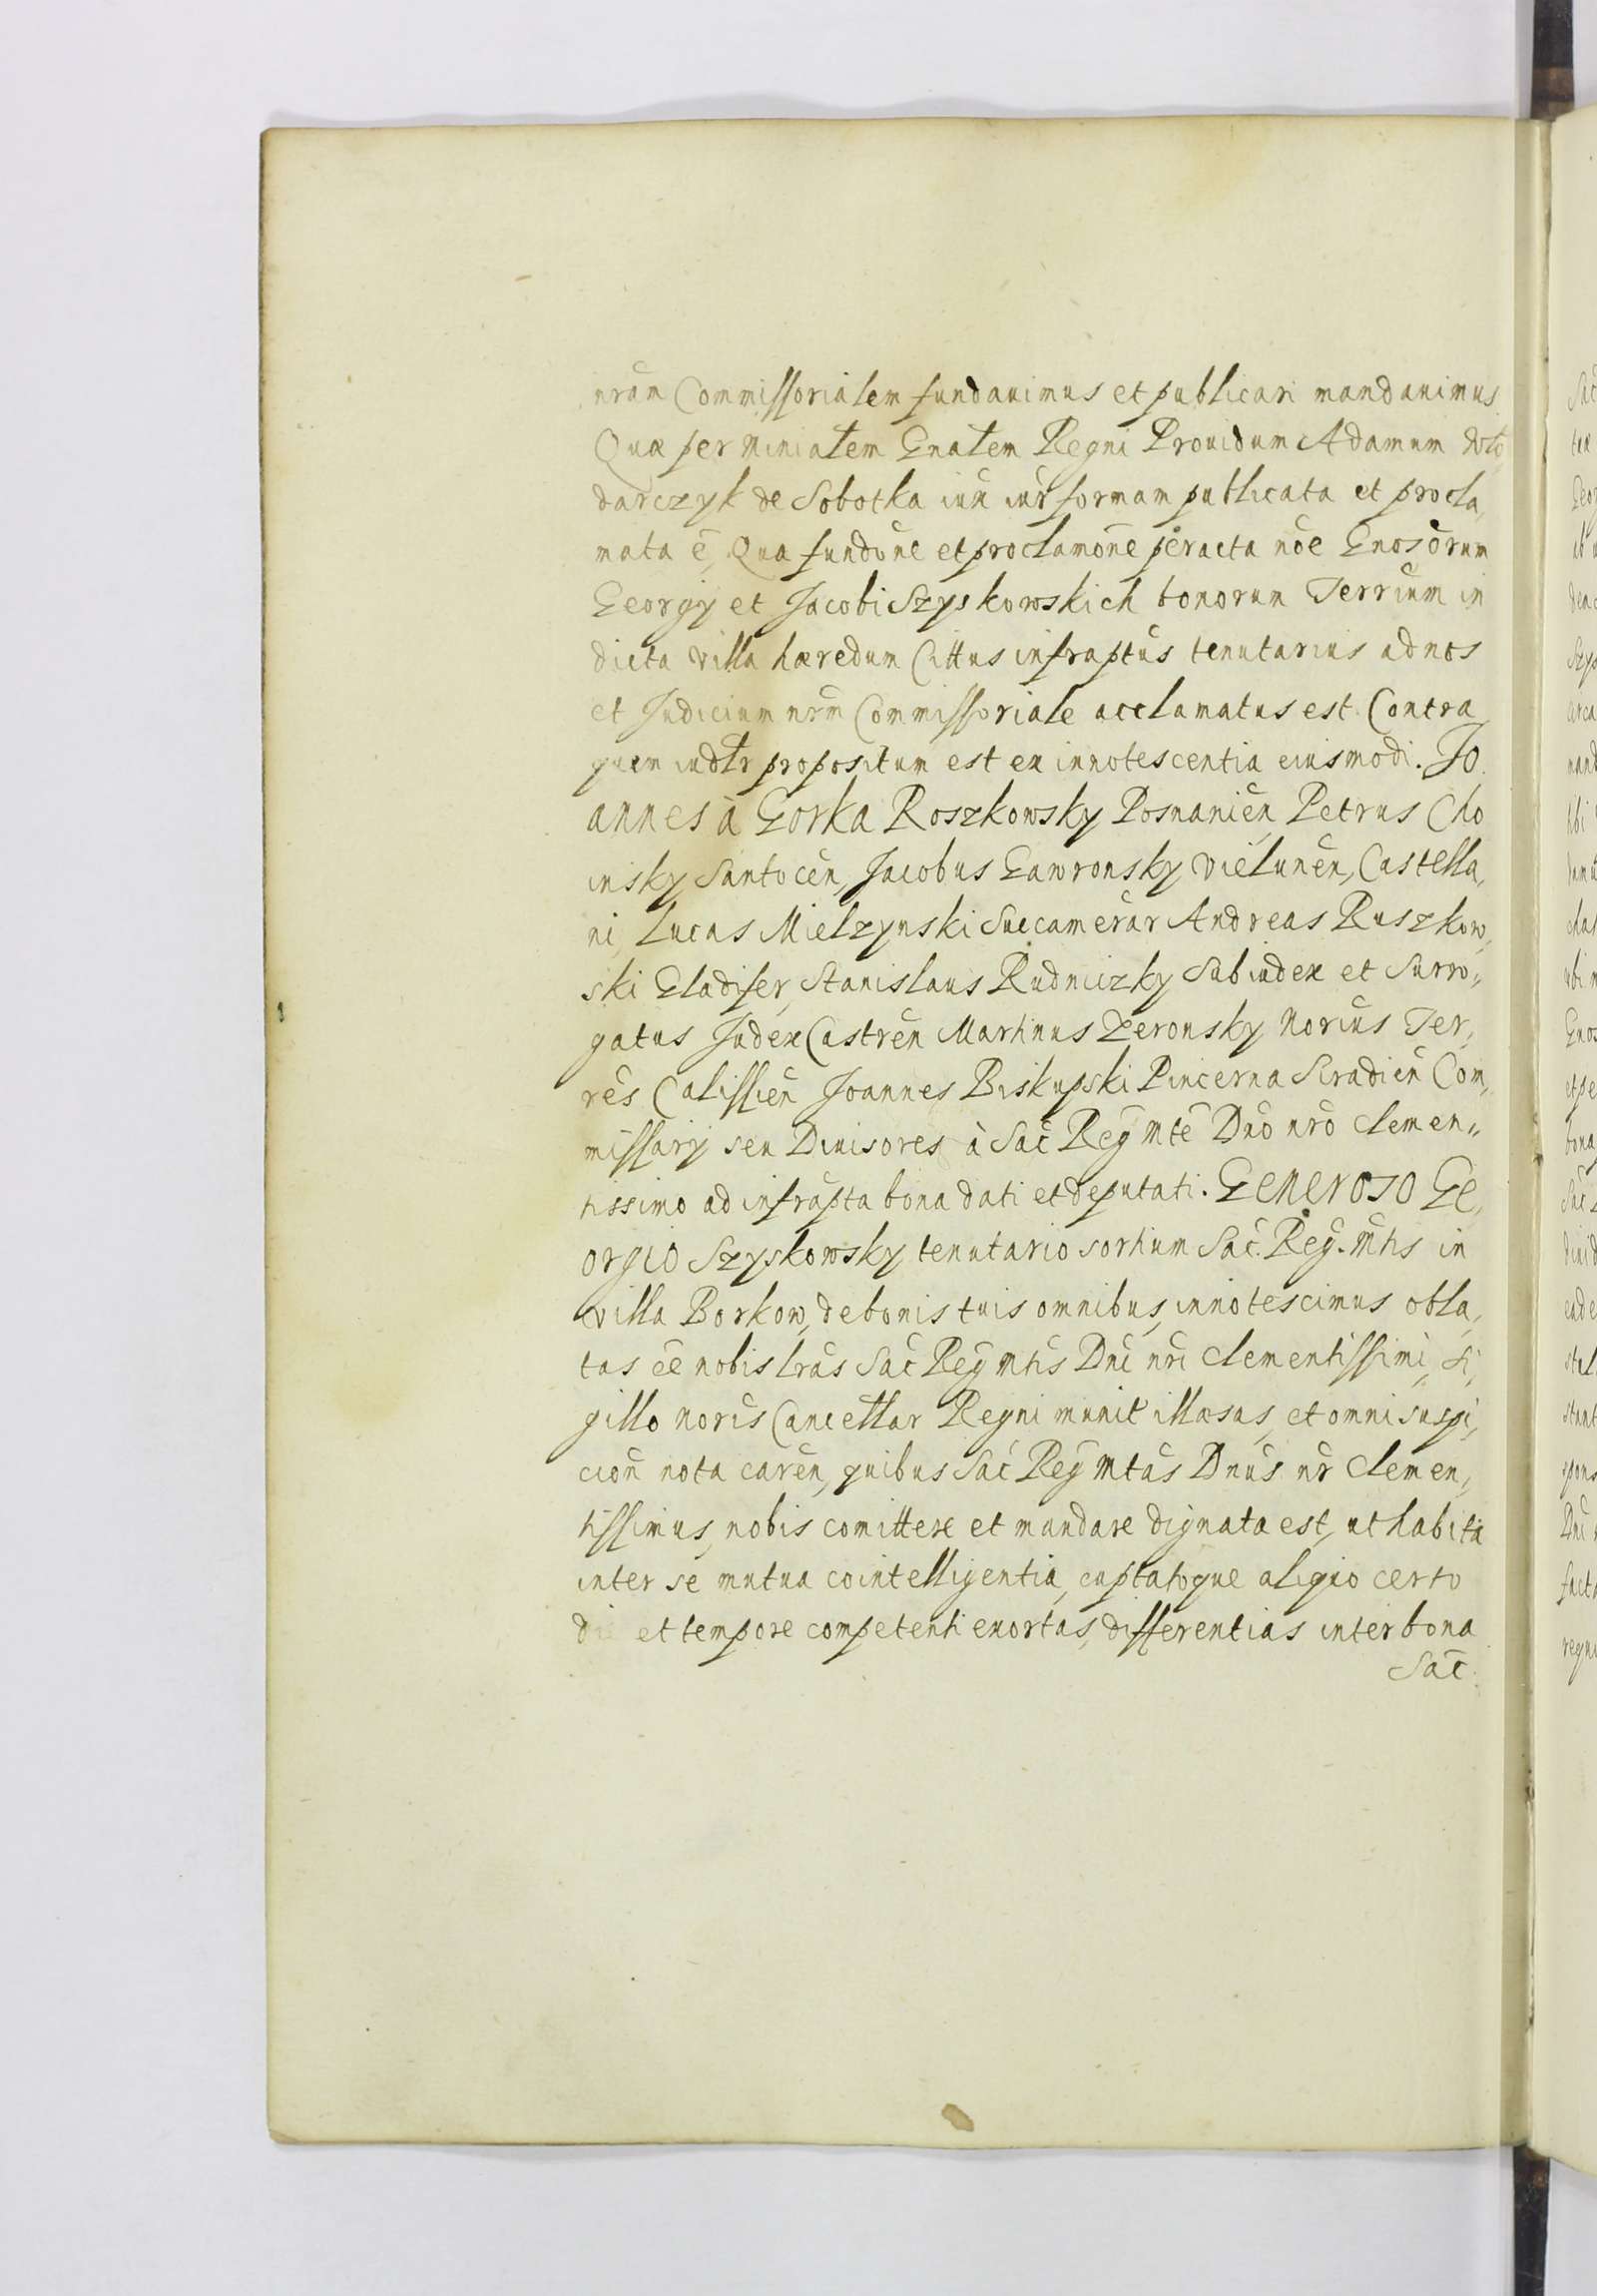 nrãm Commissorialem fundauimus et publicari mandauimus
Quæ per Miniałem Gnałem Regni Prouidum Adamum Wło„
darczyk de Sobotka iux iur̃ formam publicata et procla„
mata ẽ, Qua fundõne et proclamõne peracta nõe Gnosõrum
Georgij et Jacobi Szyskowskich bonorum Terrium in
dicta villa hæredum Cittus infraptũs tenutarius ad nos
et Judicium nrm̃ Commissoriale acclamatus est. Contra
quem iudłr propositum est ex innotescentia eiusmodi. Jo„
annes à Gorka Roszkowsky Posnaniẽn, Petrus Cho
insky Santocẽn, Jacobus Gawronsky Vielunẽn, Castella„
ni, Lucas Mielzynski Succamerãr Andreas Ruszkow„
ski Gladifer, Stanislaus Rudniczky Subiudex et Surro„
gatus Judex Castrẽn Martinus Zeronsky Norius Ter„
rẽs Calissiẽn Joannes Biskupski Pincerna Siradiẽn Com„
missarij seu Diuisores à Sac̃ Reg̃ Mtẽ Dnõ nrõ clemen„
tissimo ad infrapta bona dati et deputati. Generoso Ge„
orgio Szyskowsky tenutario sortium Sac̃. Reg̃. Mtis in
villa Borkow, de bonis tuis omnibus, innotescimus obla„
tas ẽe nobis lrãs Sac̃ Reg̃ Mtis̃ Dnĩ nrĩ clementissimi, si„
gillo noris̃ Cancellar Regni munit̃ illæsas, et omni suspi„
ciõn nota carẽn, quibus Sac̃ Reg̃ Mtãs Dnũs nr̃ clemen„
tissimus, nobis comittere et mandare dignata est, ut habita
inter se mutua cointelligentia, captatoque aliquo certo
die et tempore competenti exortas, differentias inter bona
Sac̃